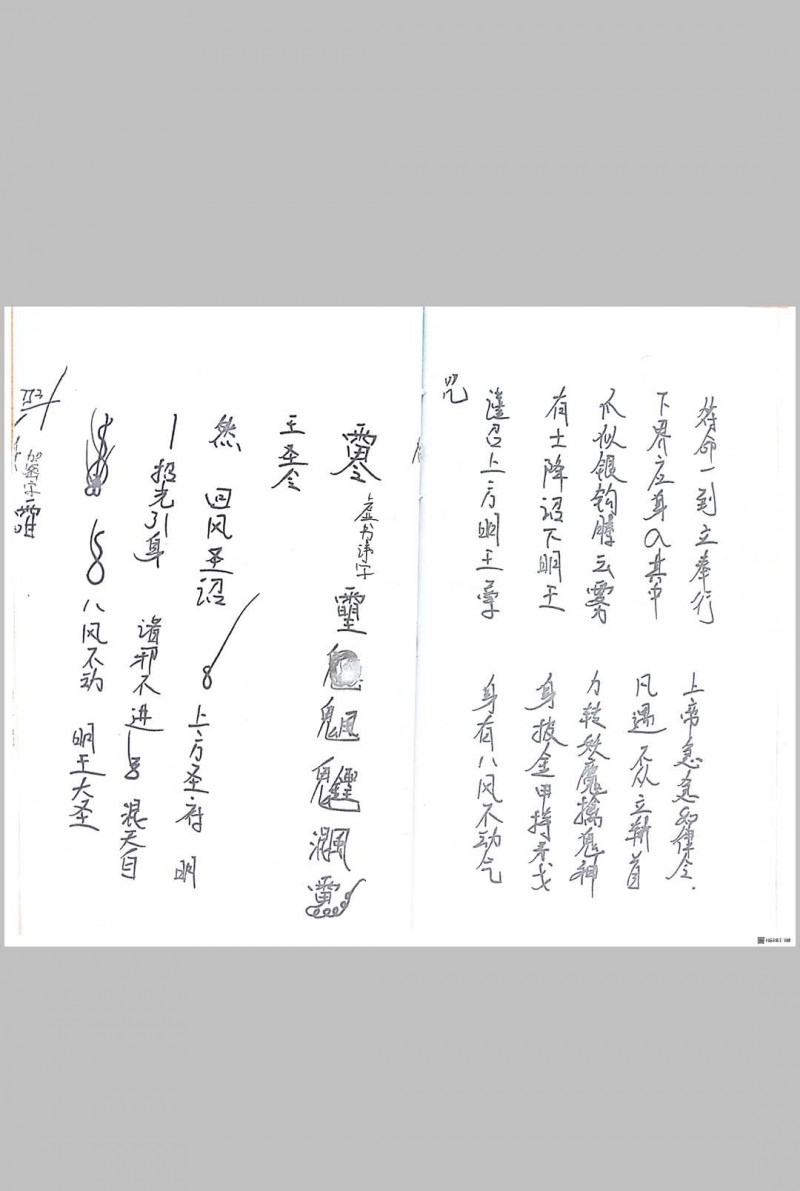 加签字
八风不动 明王大圣
招光引身 诸邪不进 混天自
然 回风圣诏 上方圣府 明
王圣令
虚书讳字
咒
谨召上方明王尊 身有八风不动气
有士降诏下明王 身披金甲持矛戈
爪似银钩腾云雾 力转妖魔擒鬼神
下界应身入其中 凡遇不从立斩首
符命一到立奉行 上帝急急如律令.